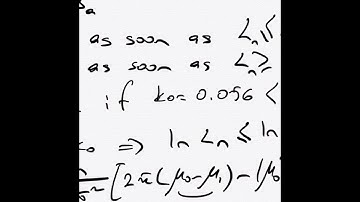 as soon as Ln ≤
as soon as Ln ≥
if k0 = 0.056 <
=> ln Ln ≤ ln
[2 x̄ (μ0-μ1) - (μ0